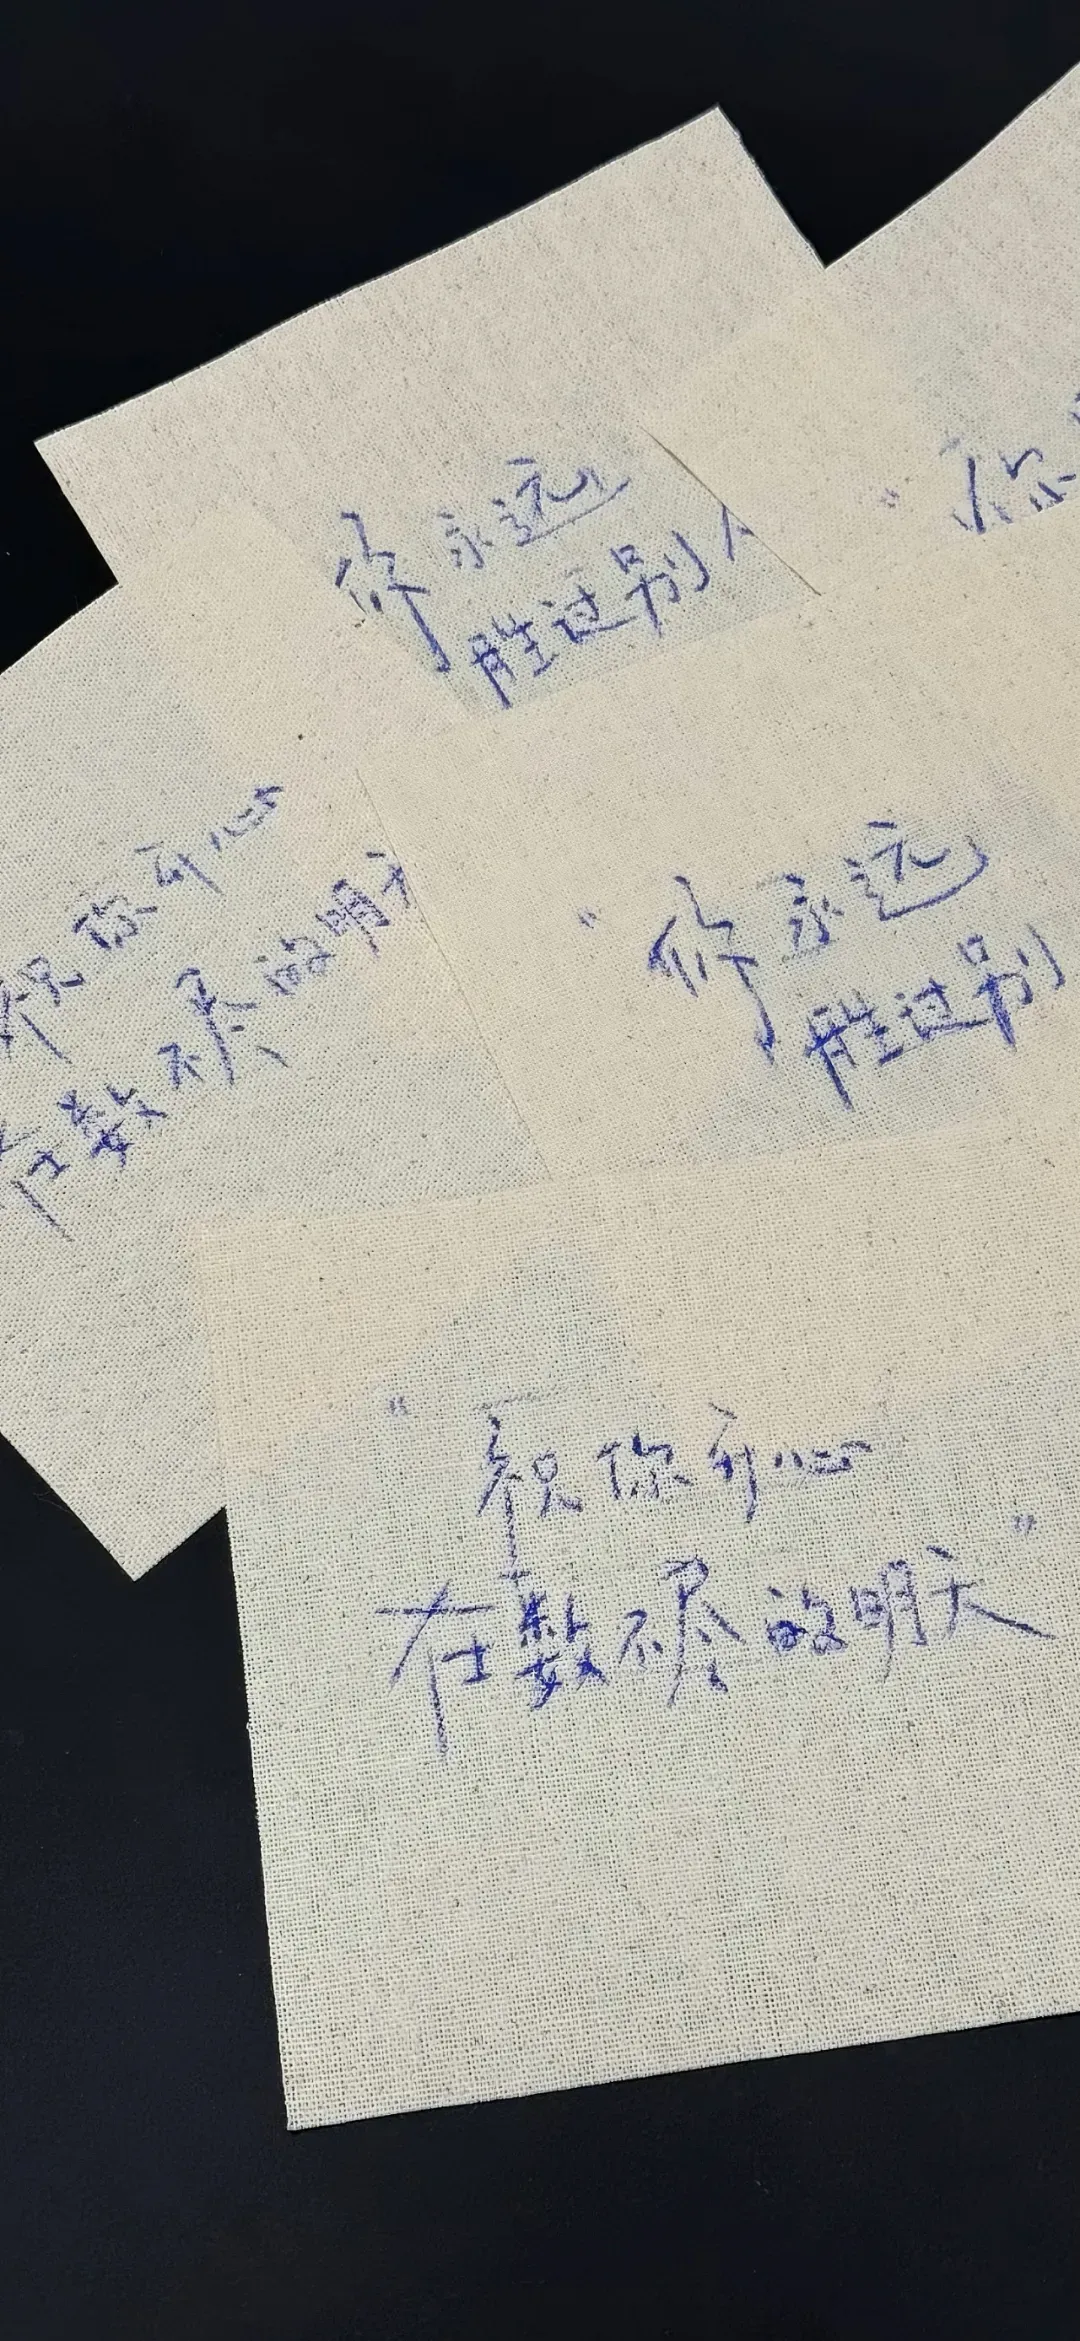 你永远
胜过别人
"你
祝你开心
在数不尽的明天
"你永远
胜过别
"祝你开心
在数不尽的明天"